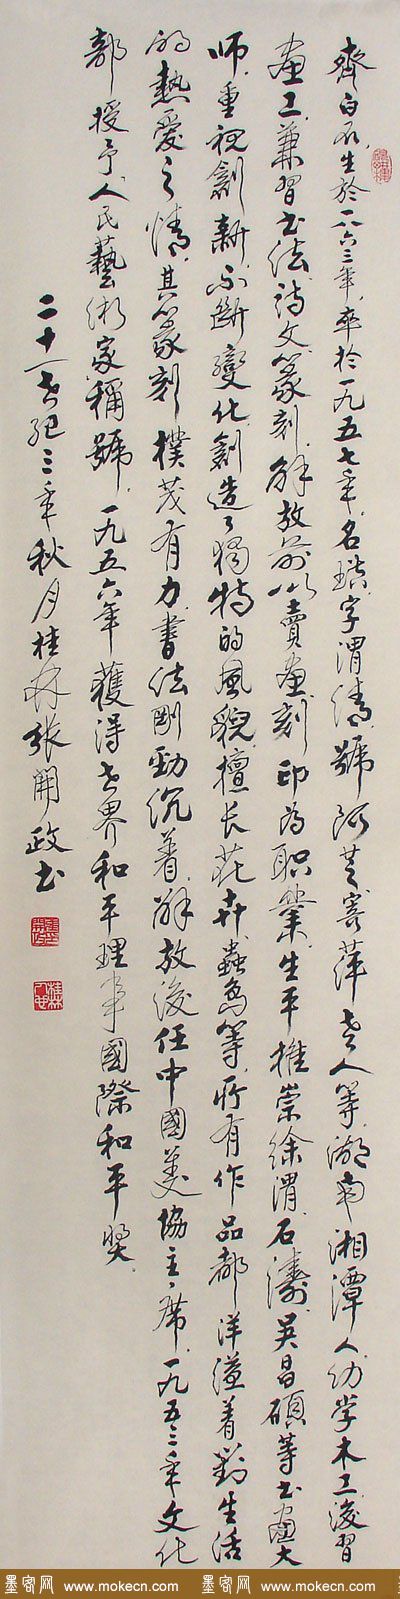 齊白石，生於一八六三年，卒於一九五七年，名璜，字渭清，號阿芝、寄萍老人等，湖南湘潭人，幼學木工，後習
畫工，兼習书法、詩文、篆刻，解放前以賣畫刻印為职業，生平推崇徐渭、石濤、吴昌碩等书畫大
师，重視創新，不断變化，創造了獨特的風貌，擅长花卉、蟲鳥等，所有作品都洋溢着對生活
的熱愛之情，其篆刻樸茂有力，書法剛勁沉着，解放後任中國美協主席，一九五三年文化
部授予人民藝術家稱號，一九五六年獲得世界和平理事國際和平獎。
二十一世紀三年秋月桂林張開政书
墨客网 www.mokecn.com 墨客网 www.mokecn.com